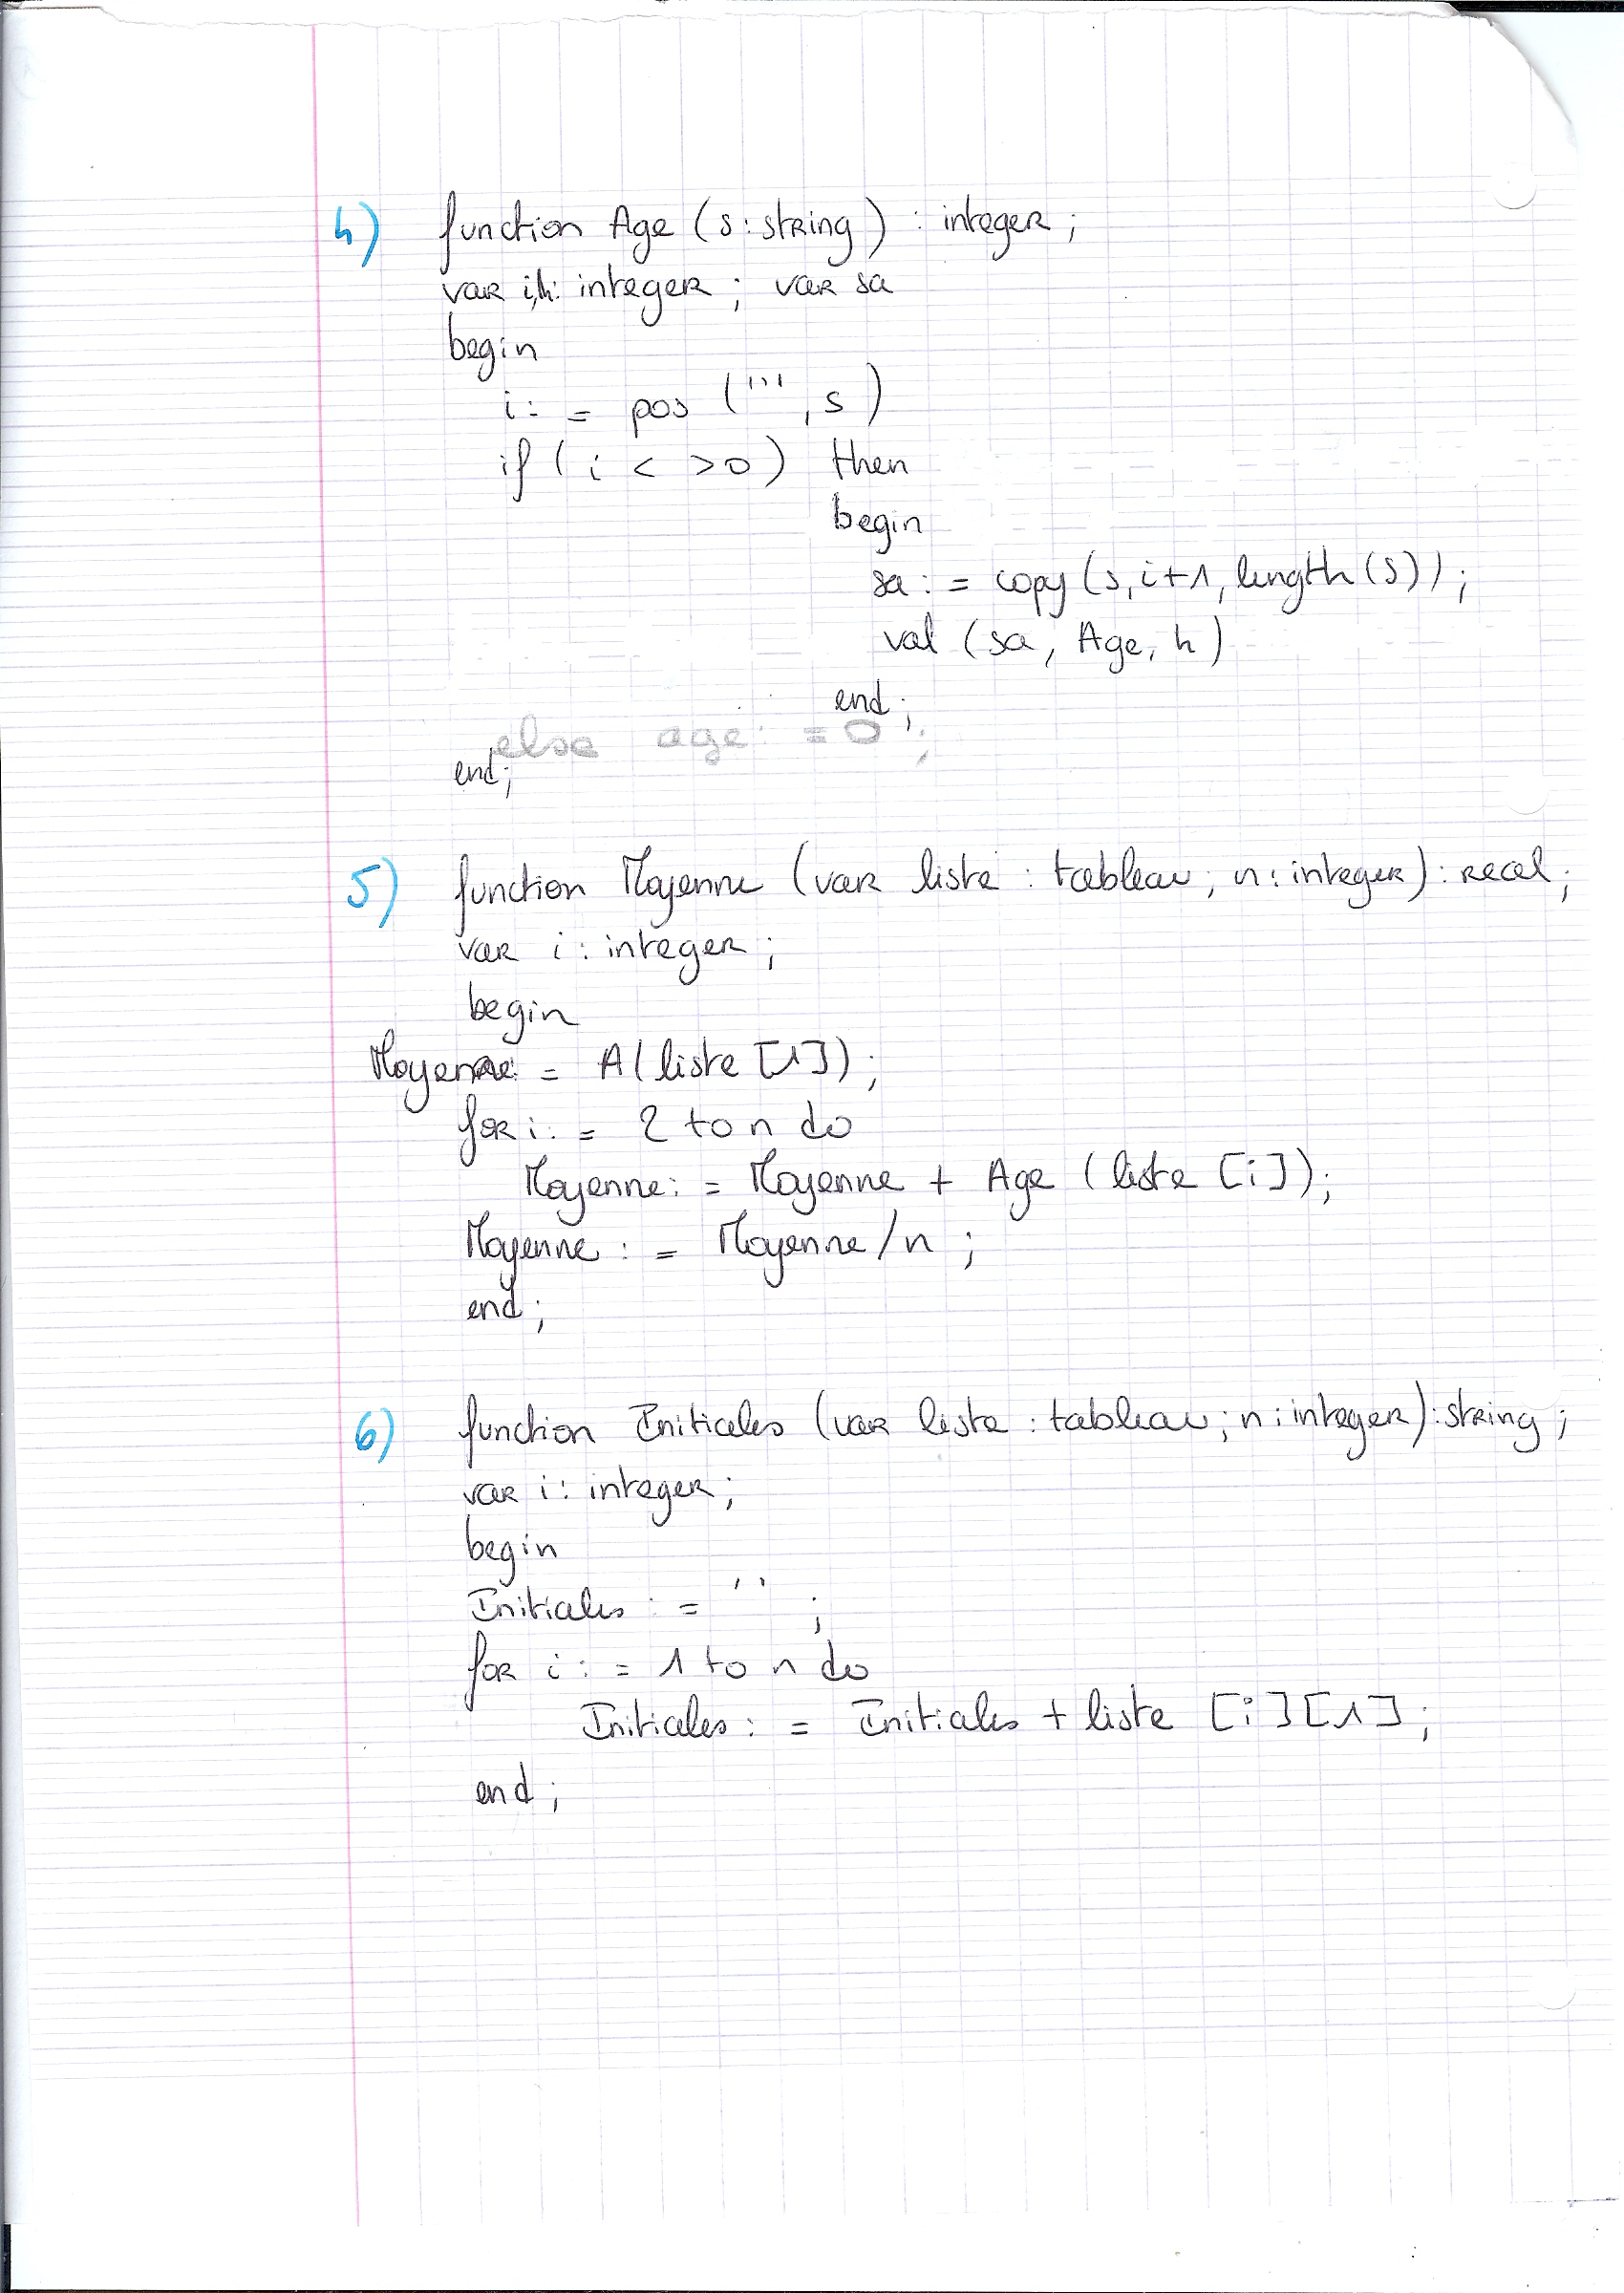 4) function Age (s : string) : integer ;
var i,k: integer ; var sa
begin
i : = pos (''',s)
if ( i < > 0 ) then
begin
sa : = copy (s, i+1, length (s)) ;
val (sa, Age, k)
end ;
else age : = 0 ;
end ;
5) function Moyenne (var liste : tableau ; n : integer) : real ;
var i : integer ;
begin
Moyenne : = A( liste [1]) ;
for i : = 2 to n do
Moyenne : = Moyenne + Age ( liste [i]) ;
Moyenne : = Moyenne / n ;
end ;
6) function Initiales (var liste : tableau ; n : integer) : string ;
var i : integer ;
begin
Initiales : = '' ;
for i : = 1 to n do
Initiales : = Initiales + liste [i][1] ;
end ;